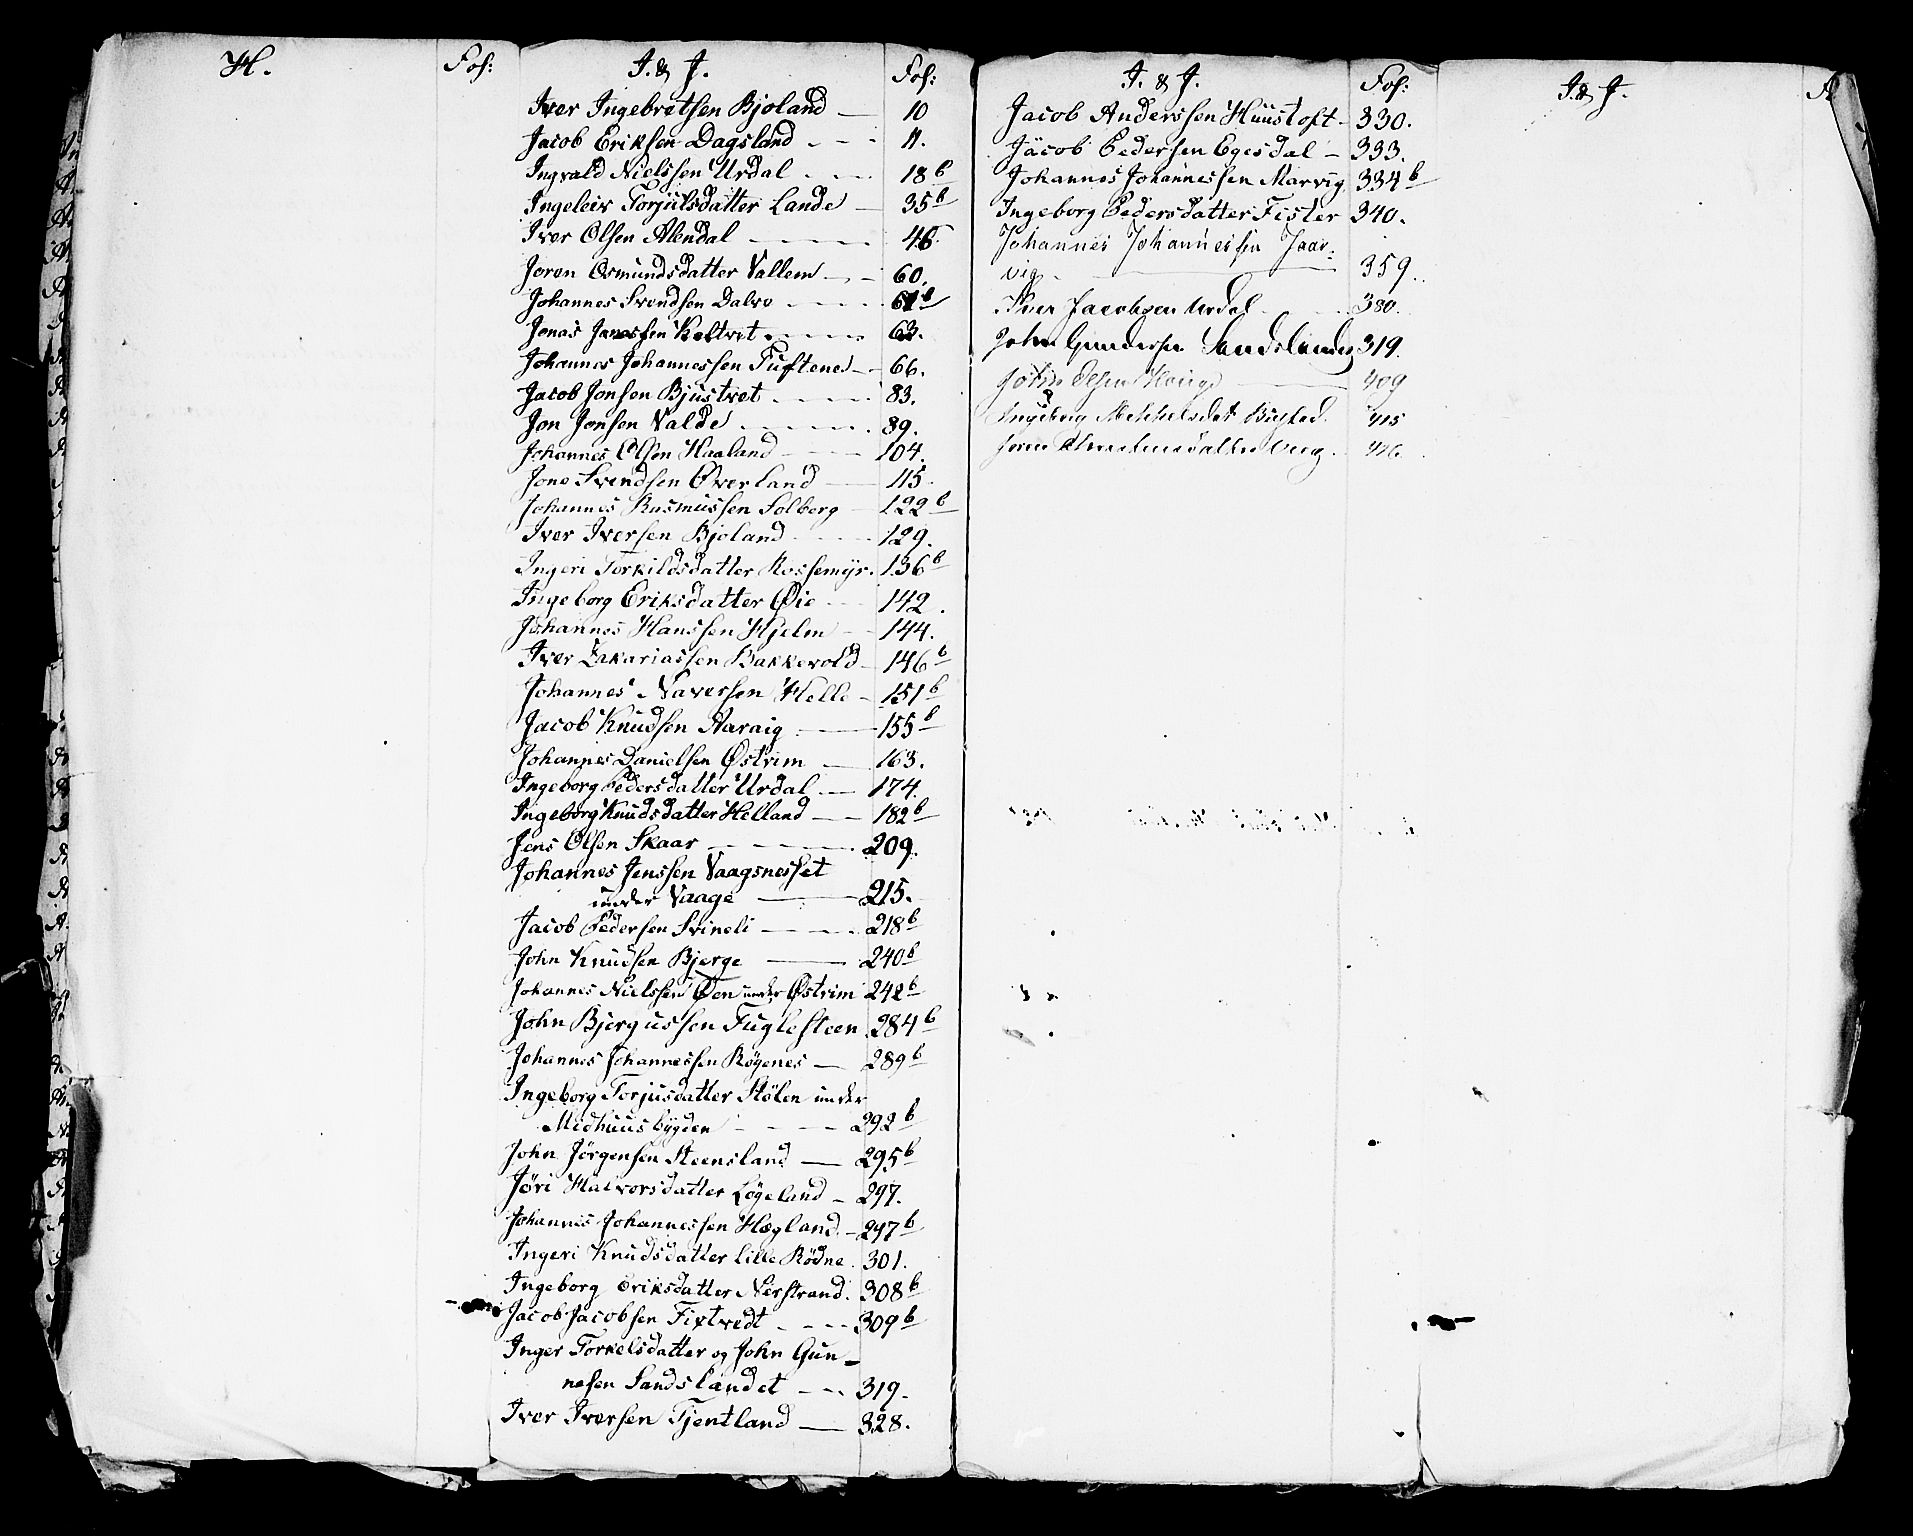 H.
Fol:
I. & J.
Fol:
Iver Ingebretsen Bjoland 10
Jacob Eriksen Dagsland 11.
Ingvald Nielssen Urdal 18 b
Ingeleiv Torjulsdatter Lande 35 b
Iver Olsen Alendal 46.
Joren Osmundsdatter Vallem 60.
Johannes Svendsen Dalvo 61 b
Jonas Janessen Keltvet 63.
Johannes Johannessen Tuftene 66.
Jacob Jonsen Bjustvet 83.
Jon Jonsen Valde 89.
Johannes Olsen Haaland 104.
Jone Svendsen Øverland 115.
Johannes Rasmussen Solberg 122 b
Iver Iversen Bjoland 129.
Ingeri Torkildsdatter Rossemyr. 136 b
Ingeborg Eriksdatter Øie 142.
Johannes Hanssen Hjelm 144.
Iver Zakariassen Bakkevold 146 b
Johannes Naversen Helle 151 b
Jacob Knudsen Aaraig 155 b
Johannes Danielsen Østrim 163.
Ingeborg Pedersdatter Urdal 174.
Ingeborg Knudsdatter Helland 182 b
Jens Olsen Skaar 209.
Johannes Jenssen Vaagsnesset
under Vaage 215.
Jacob Pedersen Svineli 218 b
John Knudsen Bjerge 240 b
Johannes Nielssen Øen under Østrim 242 b
John Bjergussen Fuglesteen 284 b
Johannes Johannessen Røgenes 289 b
Ingeborg Torjusdatter Stölen under
Midhuusbygden 292 b
John Jörgensen Steensland 295 b
Jöri Halvorsdatter Løgeland 297.
Johannes Johannessen Hægland 297 b
Ingeri Knudsdatter lille Rödne. 301.
Ingeborg Eriksdatter Nerstrand. 308 b
Jacob Jacobsen Fixtvedt 309 b
Inger Torkelsdatter og John Gun-
nesen Sandslandet 319.
Iver Iversen Tjentland 328.
I. & J.
Fol:
Jacob Anderssen Huustoft 330.
Jacob Pedersen Egesdal 333.
Johannes Johannessen Marvig 334 b
Ingeborg Pedersdatter Fister 340.
Johannes Johannessen Jaar-
vig 359.
Iver Jacobsen Urdal 380.
John Gundersen Sandslandet 319.
John Olsen Hauge 409
Ingeborg Mekkelsdat 415
416
I. & J.